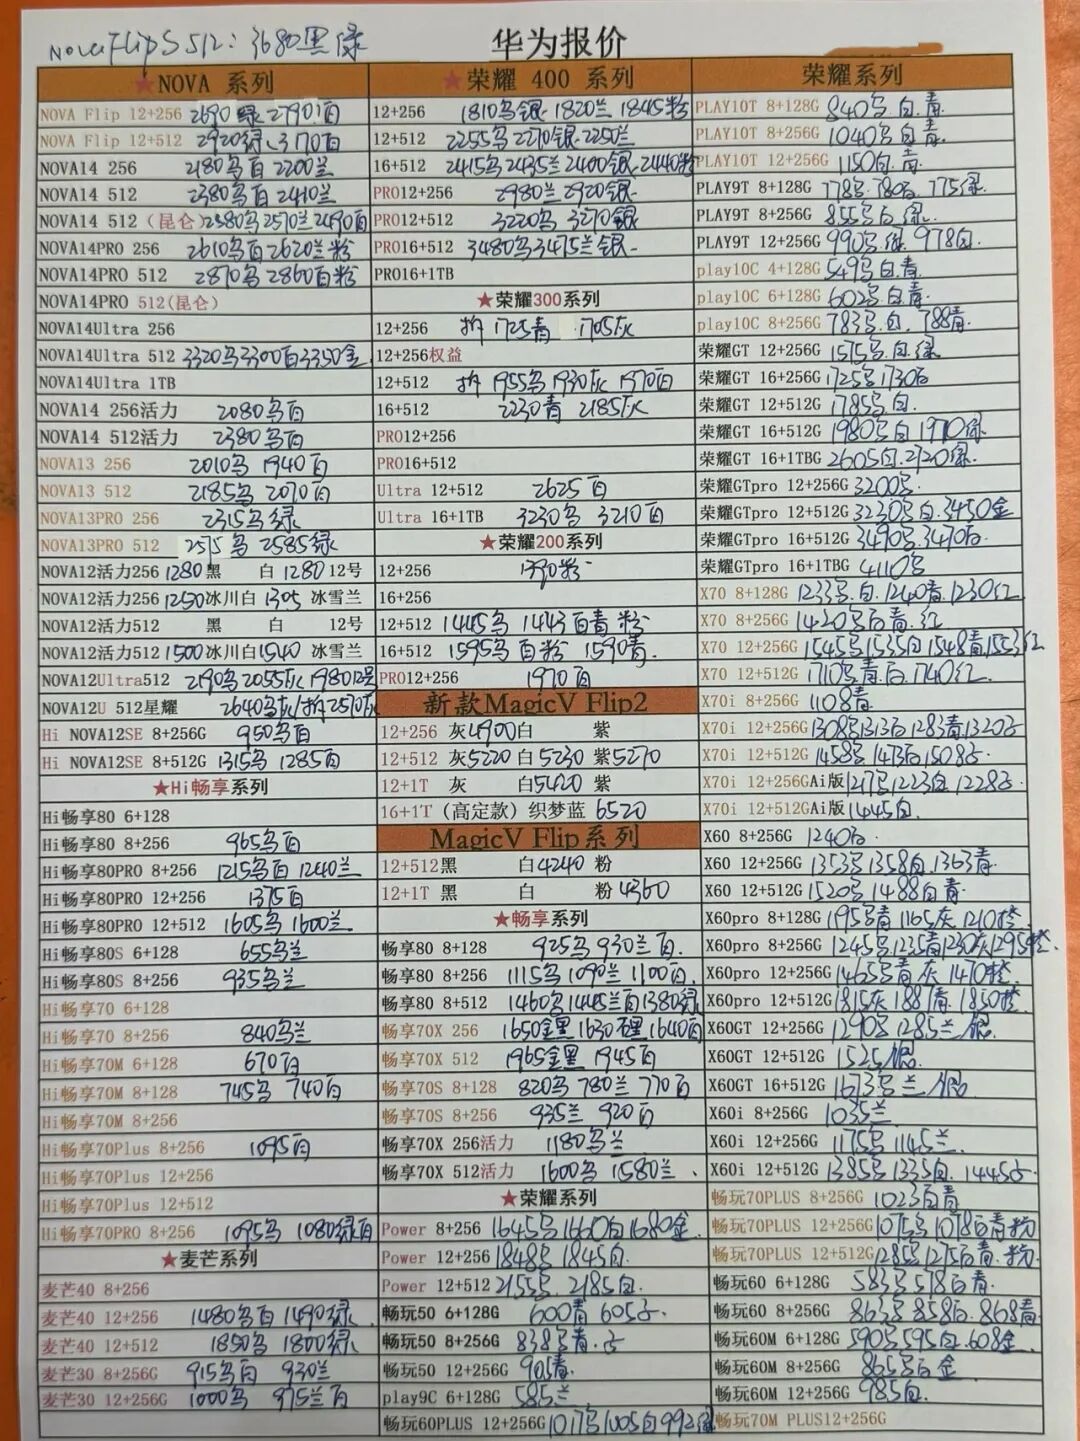 NovaFlipS 512: 3680黑绿
华为报价
★NOVA 系列
NOVA Flip 12+256 2690绿 2790白
NOVA Flip 12+512 2920绿、3170白
NOVA14 256 2180乌白 2200兰
NOVA14 512 2380乌白 2410兰
NOVA14 512 (昆仑) 2380乌2570兰2490白
NOVA14PRO 256 2610乌白2620兰粉
NOVA14PRO 512 2870乌2860白粉
NOVA14PRO 512(昆仑)
NOVA14Ultra 256
NOVA14Ultra 512 3320乌3300白3350金
NOVA14Ultra 1TB
NOVA14 256活力 2080乌白
NOVA14 512活力 2380乌白
NOVA13 256 2010乌 1940白
NOVA13 512 2185乌 2070白
NOVA13PRO 256 2315乌绿
NOVA13PRO 512 2575乌 2585绿
NOVA12活力256 1280黑 白1280 12号
NOVA12活力256 1250冰川白1305 冰雪兰
NOVA12活力512 黑 白 12号
NOVA12活力512 1500冰川白1540 冰雪兰
NOVA12Ultra512 2190乌2055灰1980 12号
NOVA12U 512星耀 2640乌灰/拆2570灰
Hi NOVA12SE 8+256G 950乌白
Hi NOVA12SE 8+512G 1315乌 1285白
★Hi畅享系列
Hi畅享80 6+128
Hi畅享80 8+256 965乌白
Hi畅享80PRO 8+256 1215乌白 1240兰
Hi畅享80PRO 12+256 1375白
Hi畅享80PRO 12+512 1605乌 1600兰
Hi畅享80S 6+128 655乌兰
Hi畅享80S 8+256 935乌兰
Hi畅享70 6+128
Hi畅享70 8+256 840乌兰
Hi畅享70M 6+128 670白
Hi畅享70M 8+128 745乌 740白
Hi畅享70M 8+256
Hi畅享70Plus 8+256 1095白
Hi畅享70Plus 12+256
Hi畅享70Plus 12+512
Hi畅享70PRO 8+256 1095乌 1080绿白
★麦芒系列
麦芒40 8+256
麦芒40 12+256 1480乌白 1490绿
麦芒40 12+512 1850乌 1800绿
麦芒30 8+256G 915乌白 930兰
麦芒30 12+256G 1000乌 975兰白
★荣耀 400 系列
12+256 1810乌银 1820兰 1845粉
12+512 2255乌2270银 2250兰
16+512 2415乌2435兰2400银 2440粉
PRO12+256 2980兰2920银
PRO12+512 3220乌 3270银
PRO16+512 3480乌3475兰银
PRO16+1TB
★荣耀300系列
12+256 拆1725青 1705灰
12+256权益
12+512 拆1955乌1930灰 1970白
16+512 2230青 2185灰
PRO12+256
PRO16+512
Ultra 12+512 2625白
Ultra 16+1TB 3230乌 3210白
★荣耀200系列
12+256 1390粉
16+256
12+512 1445乌 1443白青 粉
16+512 1595乌白粉 1590青
PRO12+256 1970白
新款MagicV Flip2
12+256 灰4900白 紫
12+512 灰5220 白5230 紫5270
12+1T 灰 白5420 紫
16+1T (高定款) 织梦蓝 6520
MagicV Flip系列
12+512黑 白4240 粉
12+1T 黑 白 粉4360
★畅享系列
畅享80 8+128 925乌 930兰白
畅享80 8+256 1115乌1090兰 1100白
畅享80 8+512 1460乌1445兰白1380绿
畅享70X 256 1650金黑 1630 黑 1640白
畅享70X 512 1965金黑 1945白
畅享70S 8+128 820乌 780兰 770白
畅享70S 8+256 935兰 920白
畅享70X 256活力 1180乌兰
畅享70X 512活力 1600乌 1580兰
★荣耀系列
Power 8+256 1645乌1660白1680金
Power 12+256 1848乌1845白
Power 12+512 2155乌 2185白
畅玩50 6+128G 600青 605
畅玩50 8+256G 838乌青
畅玩50 12+256G 905青
play9C 6+128G 585兰
畅玩60PLUS 12+256G 1017乌1005白992绿
荣耀系列
PLAY10T 8+128G 840乌 白 青
PLAY10T 8+256G 1040乌白青
PLAY10T 12+256G 1150白 青
PLAY9T 8+128G 778乌 780白 775绿
PLAY9T 8+256G 855乌白绿
PLAY9T 12+256G 990乌绿 978白
play10C 4+128G 549乌白青
play10C 6+128G 602乌白青
play10C 8+256G 783乌白 788青
荣耀GT 12+256G 1575乌白绿
荣耀GT 16+256G 1725乌1730白
荣耀GT 12+512G 1785乌白
荣耀GT 16+512G 1980乌白1970绿
荣耀GT 16+1TBG 2605白2720绿
荣耀GTpro 12+256G 3200乌
荣耀GTpro 12+512G 3230乌白3450金
荣耀GTpro 16+512G 3490乌3470白
荣耀GTpro 16+1TBG 4110乌
X70 8+128G 1233乌白1240青1230红
X70 8+256G 1420乌白青红
X70 12+256G 1545乌1535白1548青1553红
X70 12+512G 1710乌青白1740红
X70i 8+256G 1108青
X70i 12+256G 1308乌1313白1283青1320
X70i 12+512G 1458乌1473白1508
X70i 12+256GAi版1217乌1223白1228
X70i 12+512GAi版1445白
X60 8+256G 1240白
X60 12+256G 1353乌1358白1363青
X60 12+512G 1520乌1488白青
X60pro 8+128G 1195青1165灰1210橙
X60pro 8+256G 1245乌1235青1230灰1295橙
X60pro 12+256G 1465乌青灰1470橙
X60pro 12+512G 1815灰1887青1850橙
X60GT 12+256G 1290乌1285兰/银
X60GT 12+512G 1525银
X60GT 16+512G 1673乌兰/银
X60i 8+256G 1035兰
X60i 12+256G 1175乌1145兰
X60i 12+512G 1385乌1335白1445
畅玩70PLUS 8+256G 1023白青
畅玩70PLUS 12+256G 1075乌1078白青粉
畅玩70PLUS 12+512G 1285乌1275白青粉
畅玩60 6+128G 583乌578白青
畅玩60 8+256G 863乌858白868青
畅玩60M 6+128G 590乌595白608金
畅玩60M 8+256G 865乌白金
畅玩60M 12+256G 985白
畅玩70M PLUS12+256G